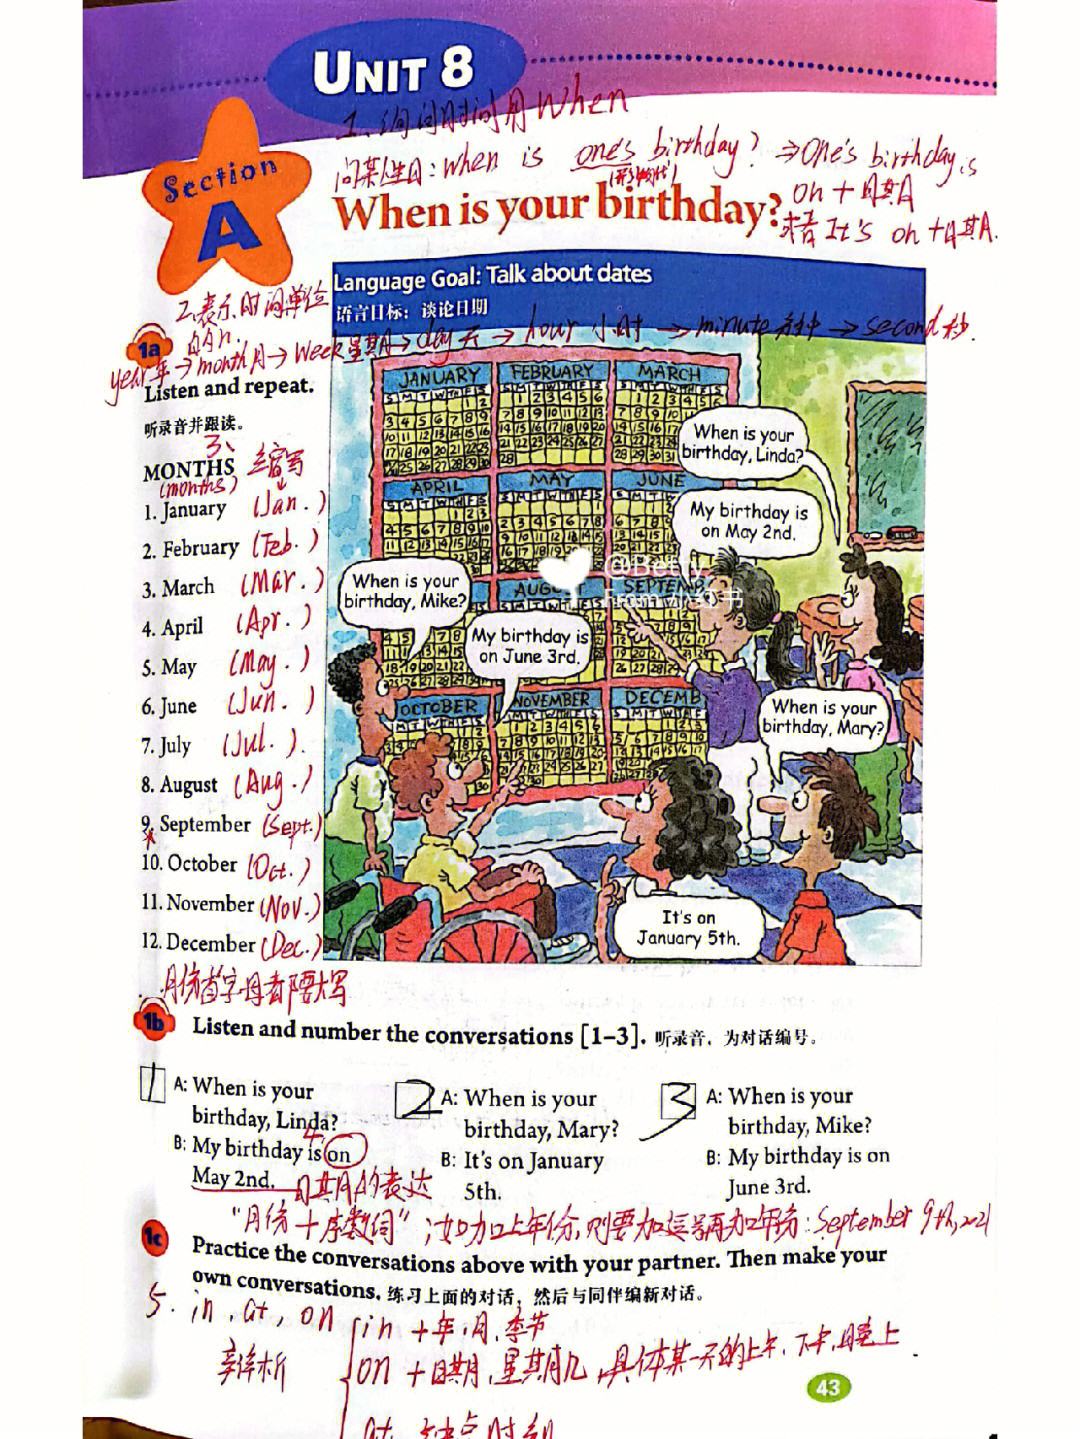 UNIT 8
1、询问时间用When
问某人生日: when is one's birthday? → One's birthday is
(形物代)
on + 日期
或者 It's on + 日期.
Section
A
When is your birthday?
Language Goal: Talk about dates
语言目标：谈论日期
2、表示时间单位
year 年 → month 月 → week 星期 → day 天 → hour 小时 → minute 分钟 → second 秒.
1a
Listen and repeat.
听录音并跟读。
3、
MONTHS 缩写
(months)
1. January (Jan.)
2. February (Feb.)
3. March (Mar.)
4. April (Apr.)
5. May (May.)
6. June (Jun.)
7. July (Jul.)
8. August (Aug.)
9. September (Sept.)
10. October (Oct.)
11. November (Nov.)
12. December (Dec.)
月份首字母都要大写
JANUARY FEBRUARY MARCH
APRIL MAY JUNE
AUGUST SEPTEMB
OCTOBER NOVEMBER DECEMB
When is your
birthday, Linda?
My birthday is
on May 2nd.
When is your
birthday, Mike?
My birthday is
on June 3rd.
When is your
birthday, Mary?
It's on
January 5th.
@Betty
From 小红书
1b
Listen and number the conversations [1–3]. 听录音，为对话编号。
1
A: When is your
birthday, Linda?
4
B: My birthday is on
May 2nd. 日期的表达
2
A: When is your
birthday, Mary?
B: It's on January
5th.
3
A: When is your
birthday, Mike?
B: My birthday is on
June 3rd.
“月份+序数词”；如加上年份，则要加逗号再加年份: September 9th, 2021
1c
Practice the conversations above with your partner. Then make your
own conversations. 练习上面的对话，然后与同伴编新对话。
5. in, at, on
辨析
in + 年,月,季节
on + 日期,星期几,具体某一天的上午、下午,晚上
at